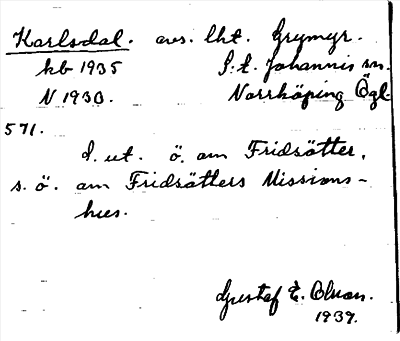 Karlsdal. avs. lht. Grymyr.
kb 1935 S:t. Johannis sn.
N 1930. Norrköping Ögl.
571.
I. ut. ö. om Fridsätter,
s. ö. om Fridsätters Missions-
hus.
Gustaf E. Olson.
1939.